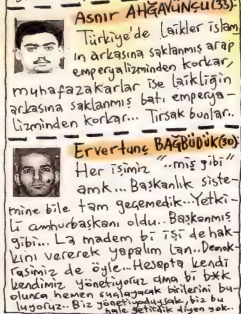 Asnır AHĞAVÜNSU (33):
Türkiye'de laikler islam
ın arkasına saklanmış arap
emperyalizminden korkar,
muhafazakarlar ise laikliğin
arkasına saklanmış batı emperya-
lizminden korkar... Tırsak bunlar..
Ervertunç BAĞBÜDÜK (30)
Her işimiz "..mış gibi"
amk... Başkanlık siste-
mine bile tam geçemedik...Yetki-
li cumhurbaşkanı oldu.. Başkanmış
gibi... La madem bi işi de hak-
kını vererek yapalım lan..Demok-
rasimiz de öyle... Hesapta kendi
kendimizi yönetiyoruz ama bi b*k
olunca hemen suçlayacak birilerini bu-
luyoruz.. Biz yönetiyoduysak, biz bu
hale getirdik diyen yok..